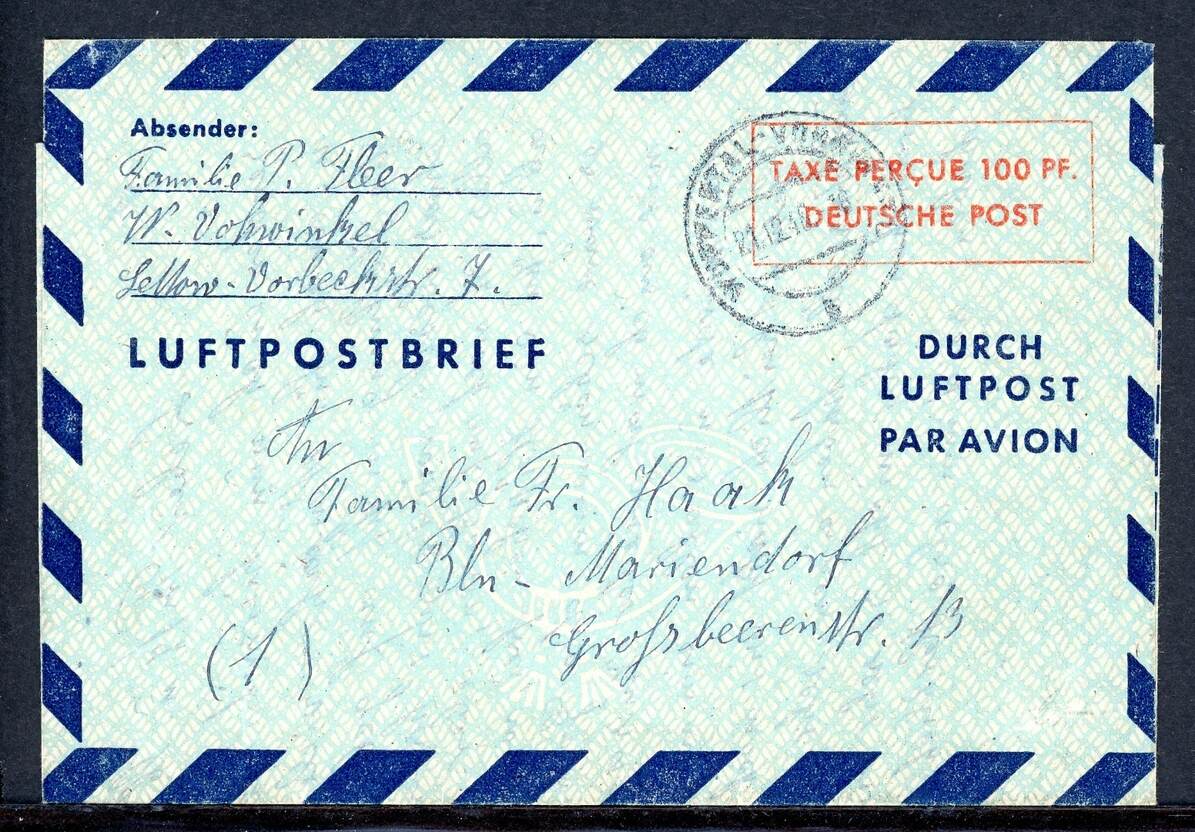 Absender:
Familie P. Fleer
W. Vohwinkel
Lettow-Vorbeckstr. 7.
LUFTPOSTBRIEF
TAXE PERÇUE 100 PF.
DEUTSCHE POST
WUPPERTAL-VOHWINKEL
DURCH
LUFTPOST
PAR AVION
An
Familie Fr. Haak
Bln-Mariendorf
Großbeerenstr. 13
(1)